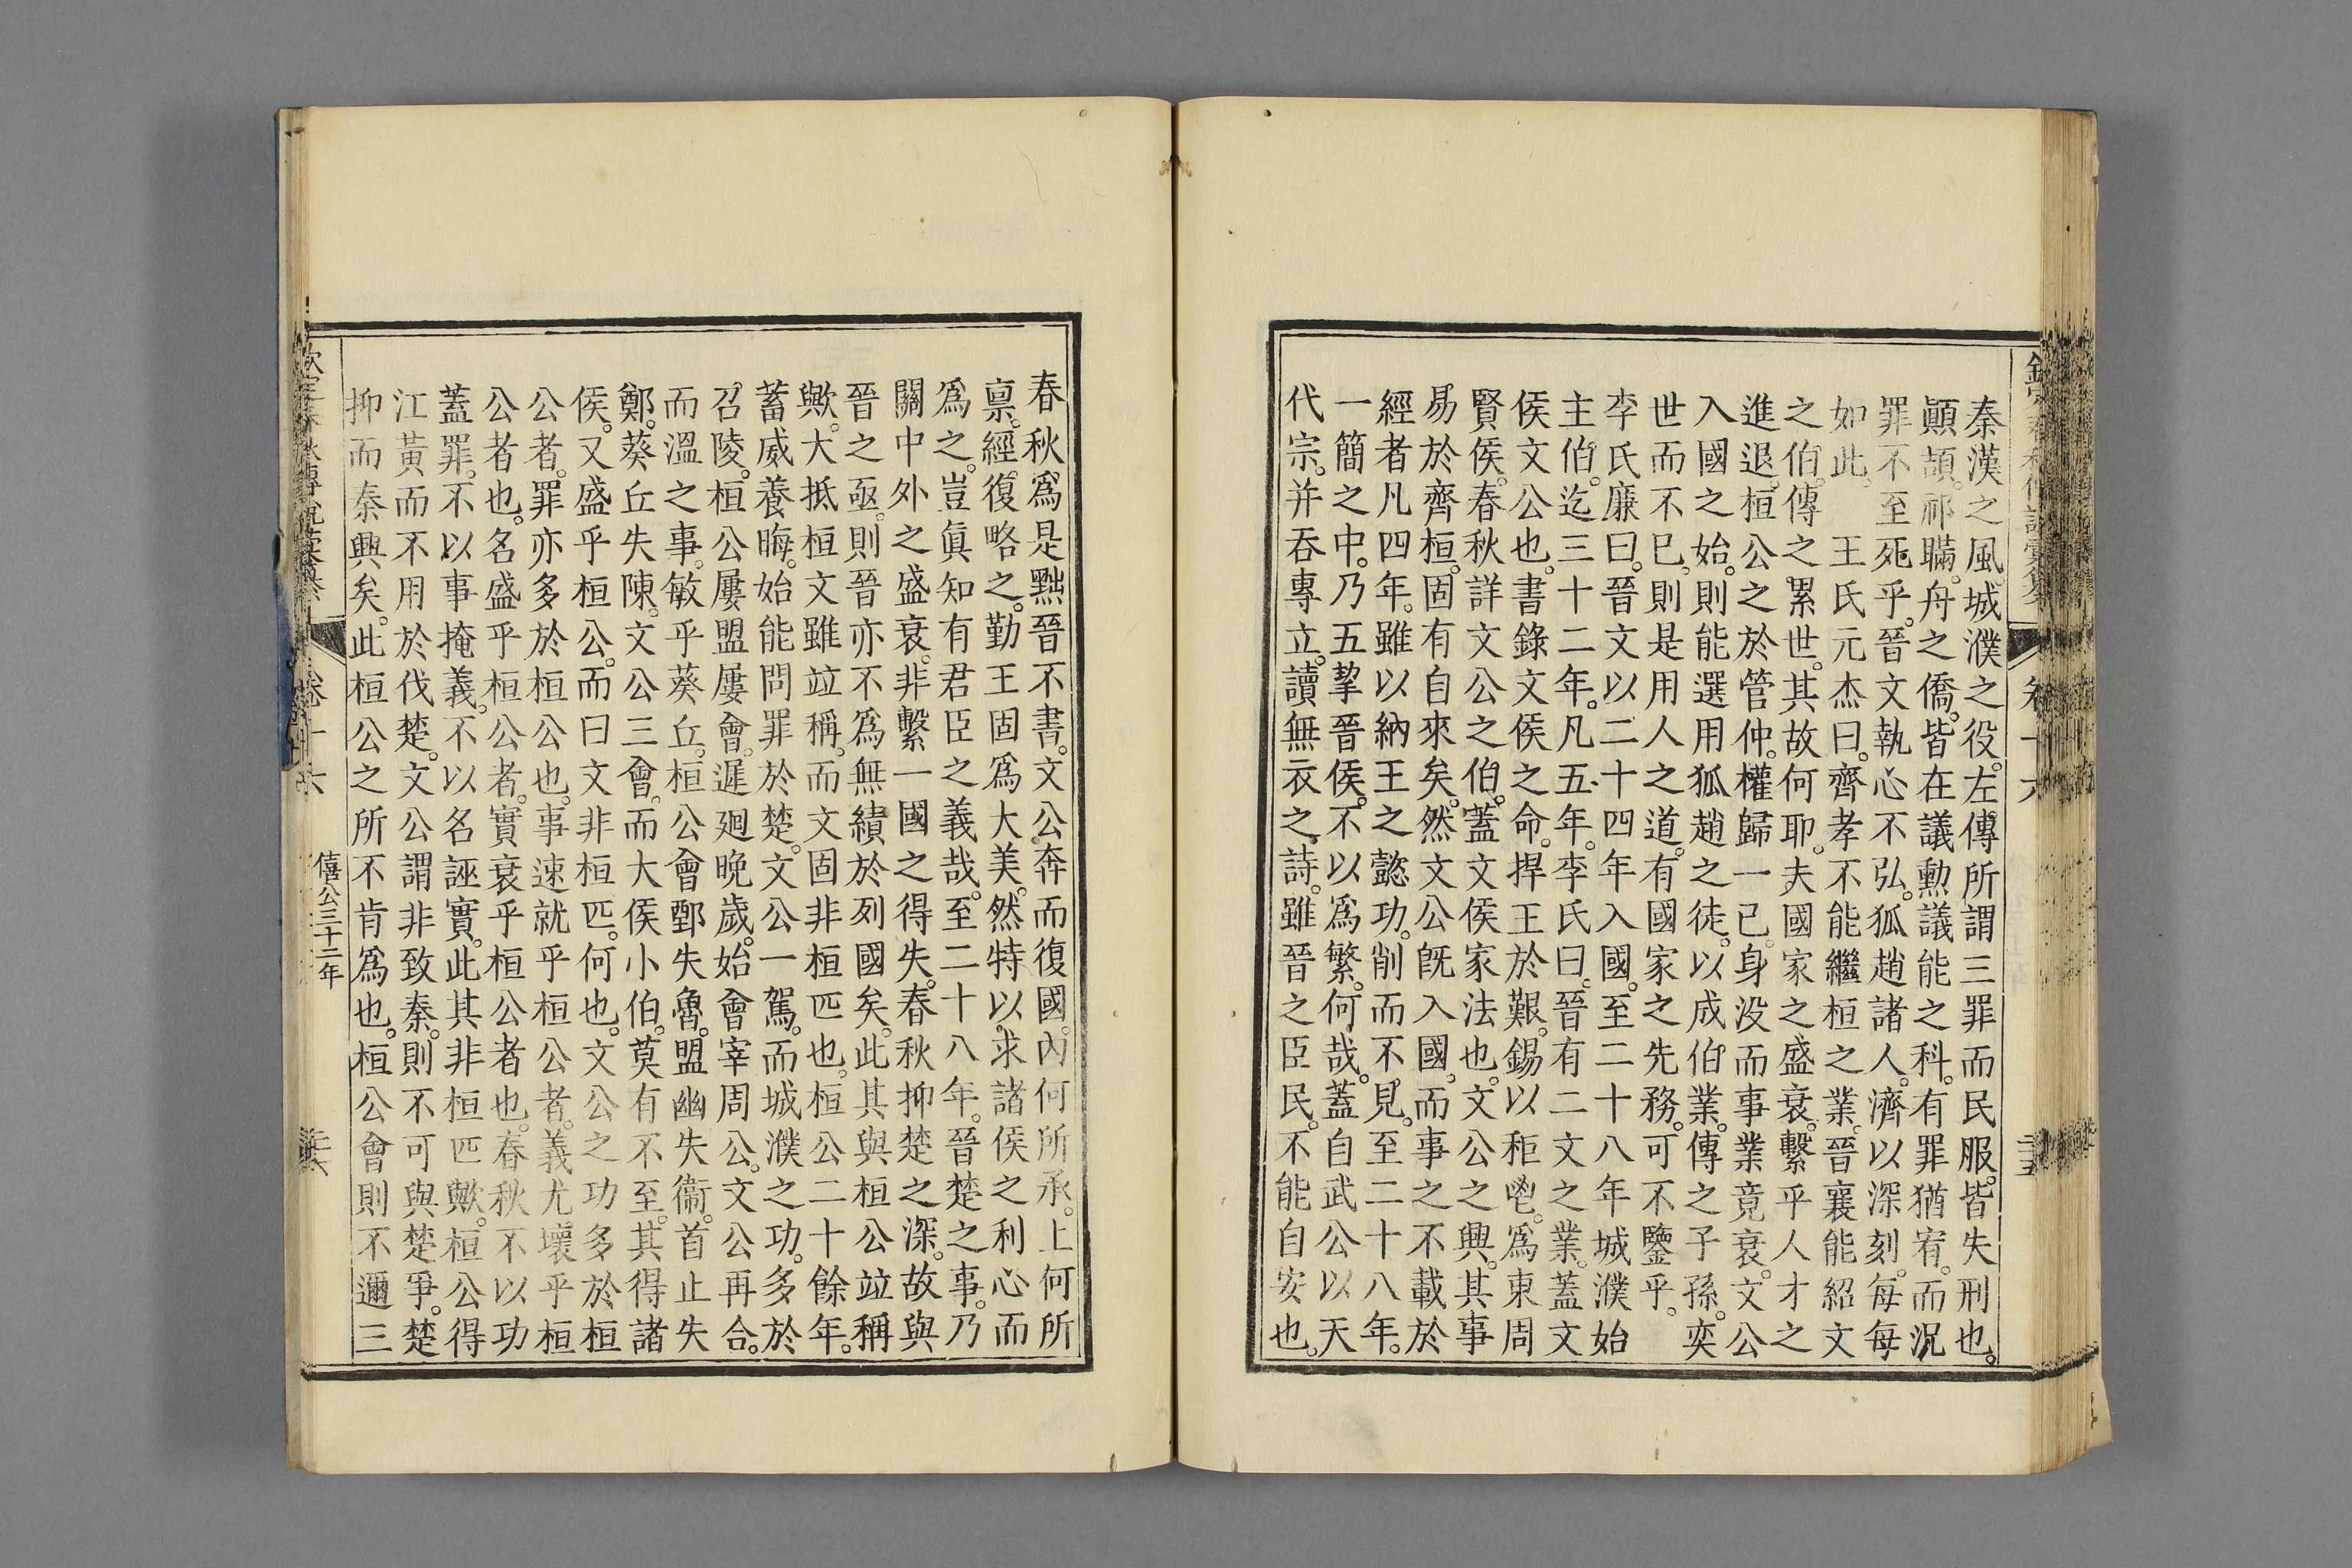 秦漢之風。城濮之役。左傳所謂三罪而民服。皆失刑也。
顚頡。祁瞞。舟之僑。皆在議勲議能之科。有罪猶宥。而況
罪不至死乎。晉文執心不弘。狐趙諸人。濟以深刻。每每
如此。　王氏元杰曰。齊孝不能繼桓之業。晉襄能紹文
之伯。傳之累世。其故何耶。夫國家之盛衰。繫乎人才之
進退。桓公之於管仲。權歸一已。身没而事業竟衰。文公
入國之始。則能選用狐趙之徒。以成伯業。傳之子孫。奕
世而不已。則是用人之道。有國家之先務。可不鑒乎。
李氏廉曰。晉文以二十四年入國。至二十八年城濮始
主伯。迄三十二年。凡五年。李氏曰。晉有二文之業。蓋文
侯文公也。書錄文侯之命。捍王於艱。錫以秬鬯。爲東周
賢侯。春秋詳文公之伯。蓋文侯家法也。文公之興。其事
易於齊桓。固有自來矣。然文公旣入國。而事之不載於
經者凡四年。雖以納王之懿功。削而不見。至二十八年。
一簡之中。乃五挈晉侯。不以爲繁。何哉。蓋自武公以天
代宗。并吞專立。讀無衣之詩。雖晉之臣民。不能自安也。
卷十六
春秋爲是黜晉不書。文公奔而復國。內何所承。上何所
禀。經復略之。勤王固爲大美。然特以求諸侯之利心而
爲之。豈眞知有君臣之義哉。至二十八年。晉楚之事。乃
關中外之盛衰。非繫一國之得失。春秋抑楚之深。故與
晉之亟。則晉亦不爲無績於列國矣。此其與桓公竝稱
歟。大抵桓文雖竝稱。而文固非桓匹也。桓公二十餘年。
蓄威養晦。始能問罪於楚。文公一駕。而城濮之功。多於
召陵。桓公屢盟屢會。遲廻晩歲。始會宰周公。文公再合。
而溫之事。敏乎葵丘。桓公會鄄失魯。盟幽失衞。首止失
鄭。葵丘失陳。文公三會。而大侯小伯。莫有不至。其得諸
侯。又盛乎桓公。而曰文非桓匹。何也。文公之功多於桓
公者。罪亦多於桓公也。事速就乎桓公者。義尤壞乎桓
公者也。名盛乎桓公者。實衰乎桓公者也。春秋不以功
蓋罪。不以事掩義。不以名誣實。此其非桓匹歟。桓公得
江黃而不用於伐楚。文公謂非致秦。則不可與楚爭。楚
抑而秦興矣。此桓公之所不肯爲也。桓公會則不邇三
卷十六　僖公三十二年